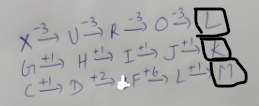 X -3→ U -3→ R -3→ O -3→ L
G +1→ H +1→ I +1→ J +1→ K
C +1→ D +2→ F +6→ L +1→ M